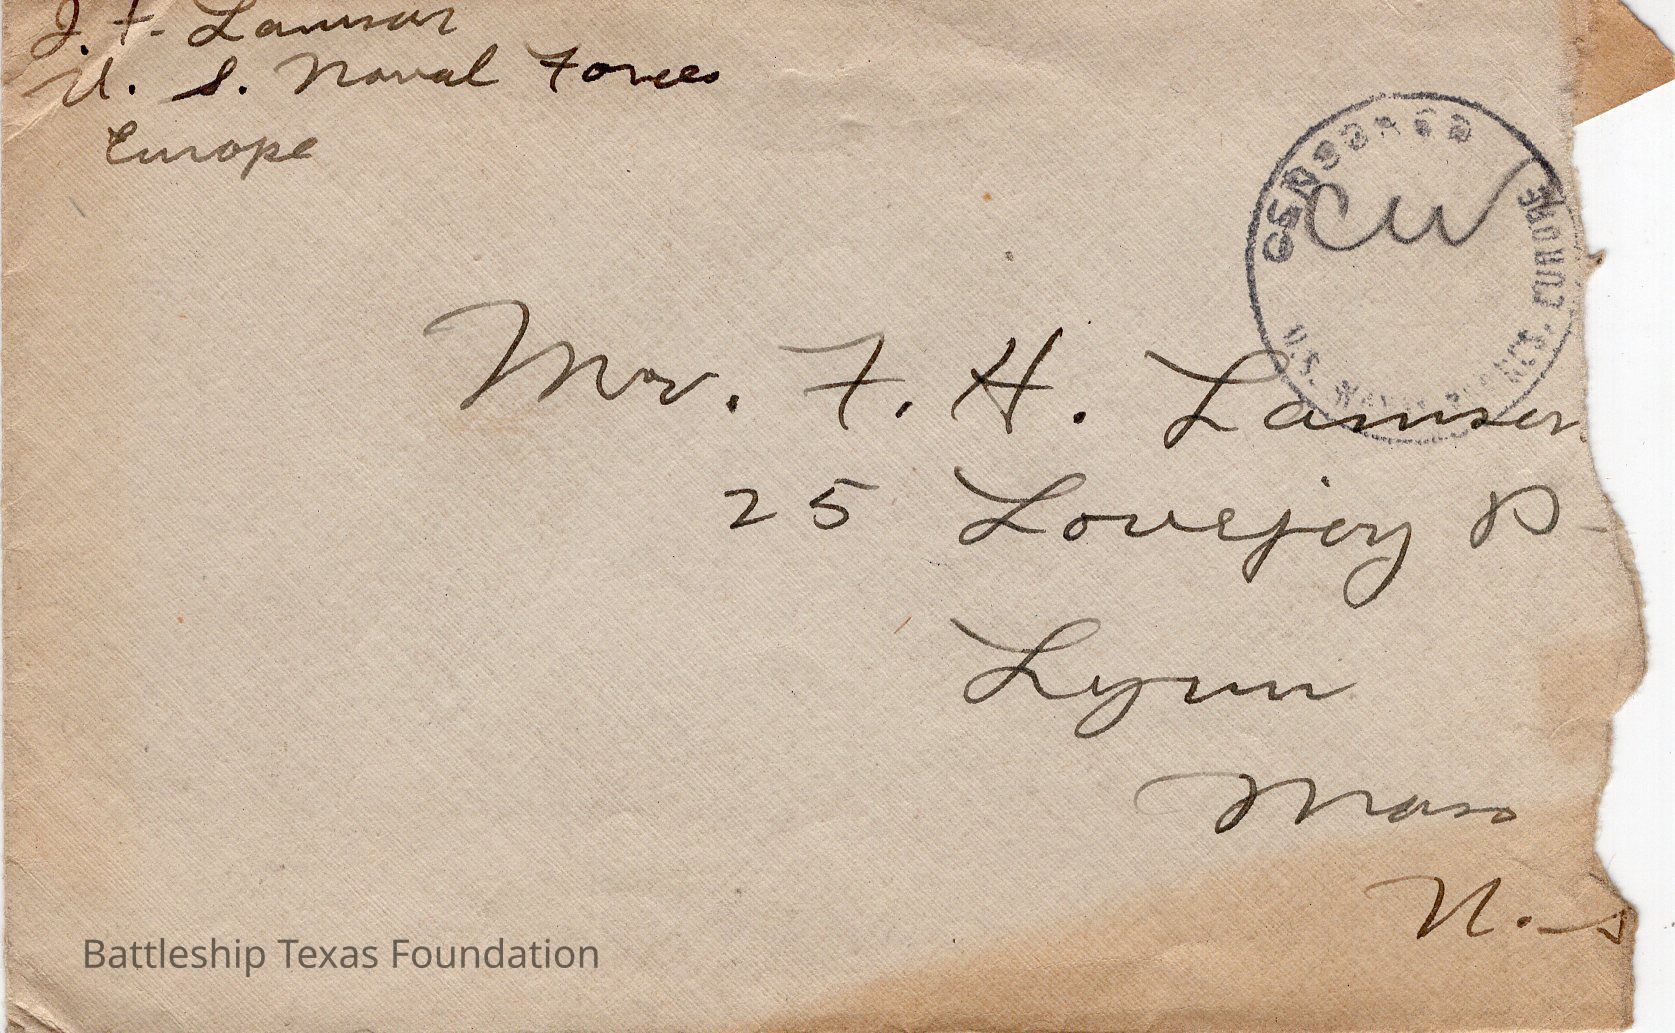 J. F. Lamson
U. S. Naval Forces
Europe
CENSORED
CW
U.S. NAVAL FORCES, EUROPE
Mr. F. H. Lamson
25 Lovejoy P
Lynn
Mass
U. S
Battleship Texas Foundation